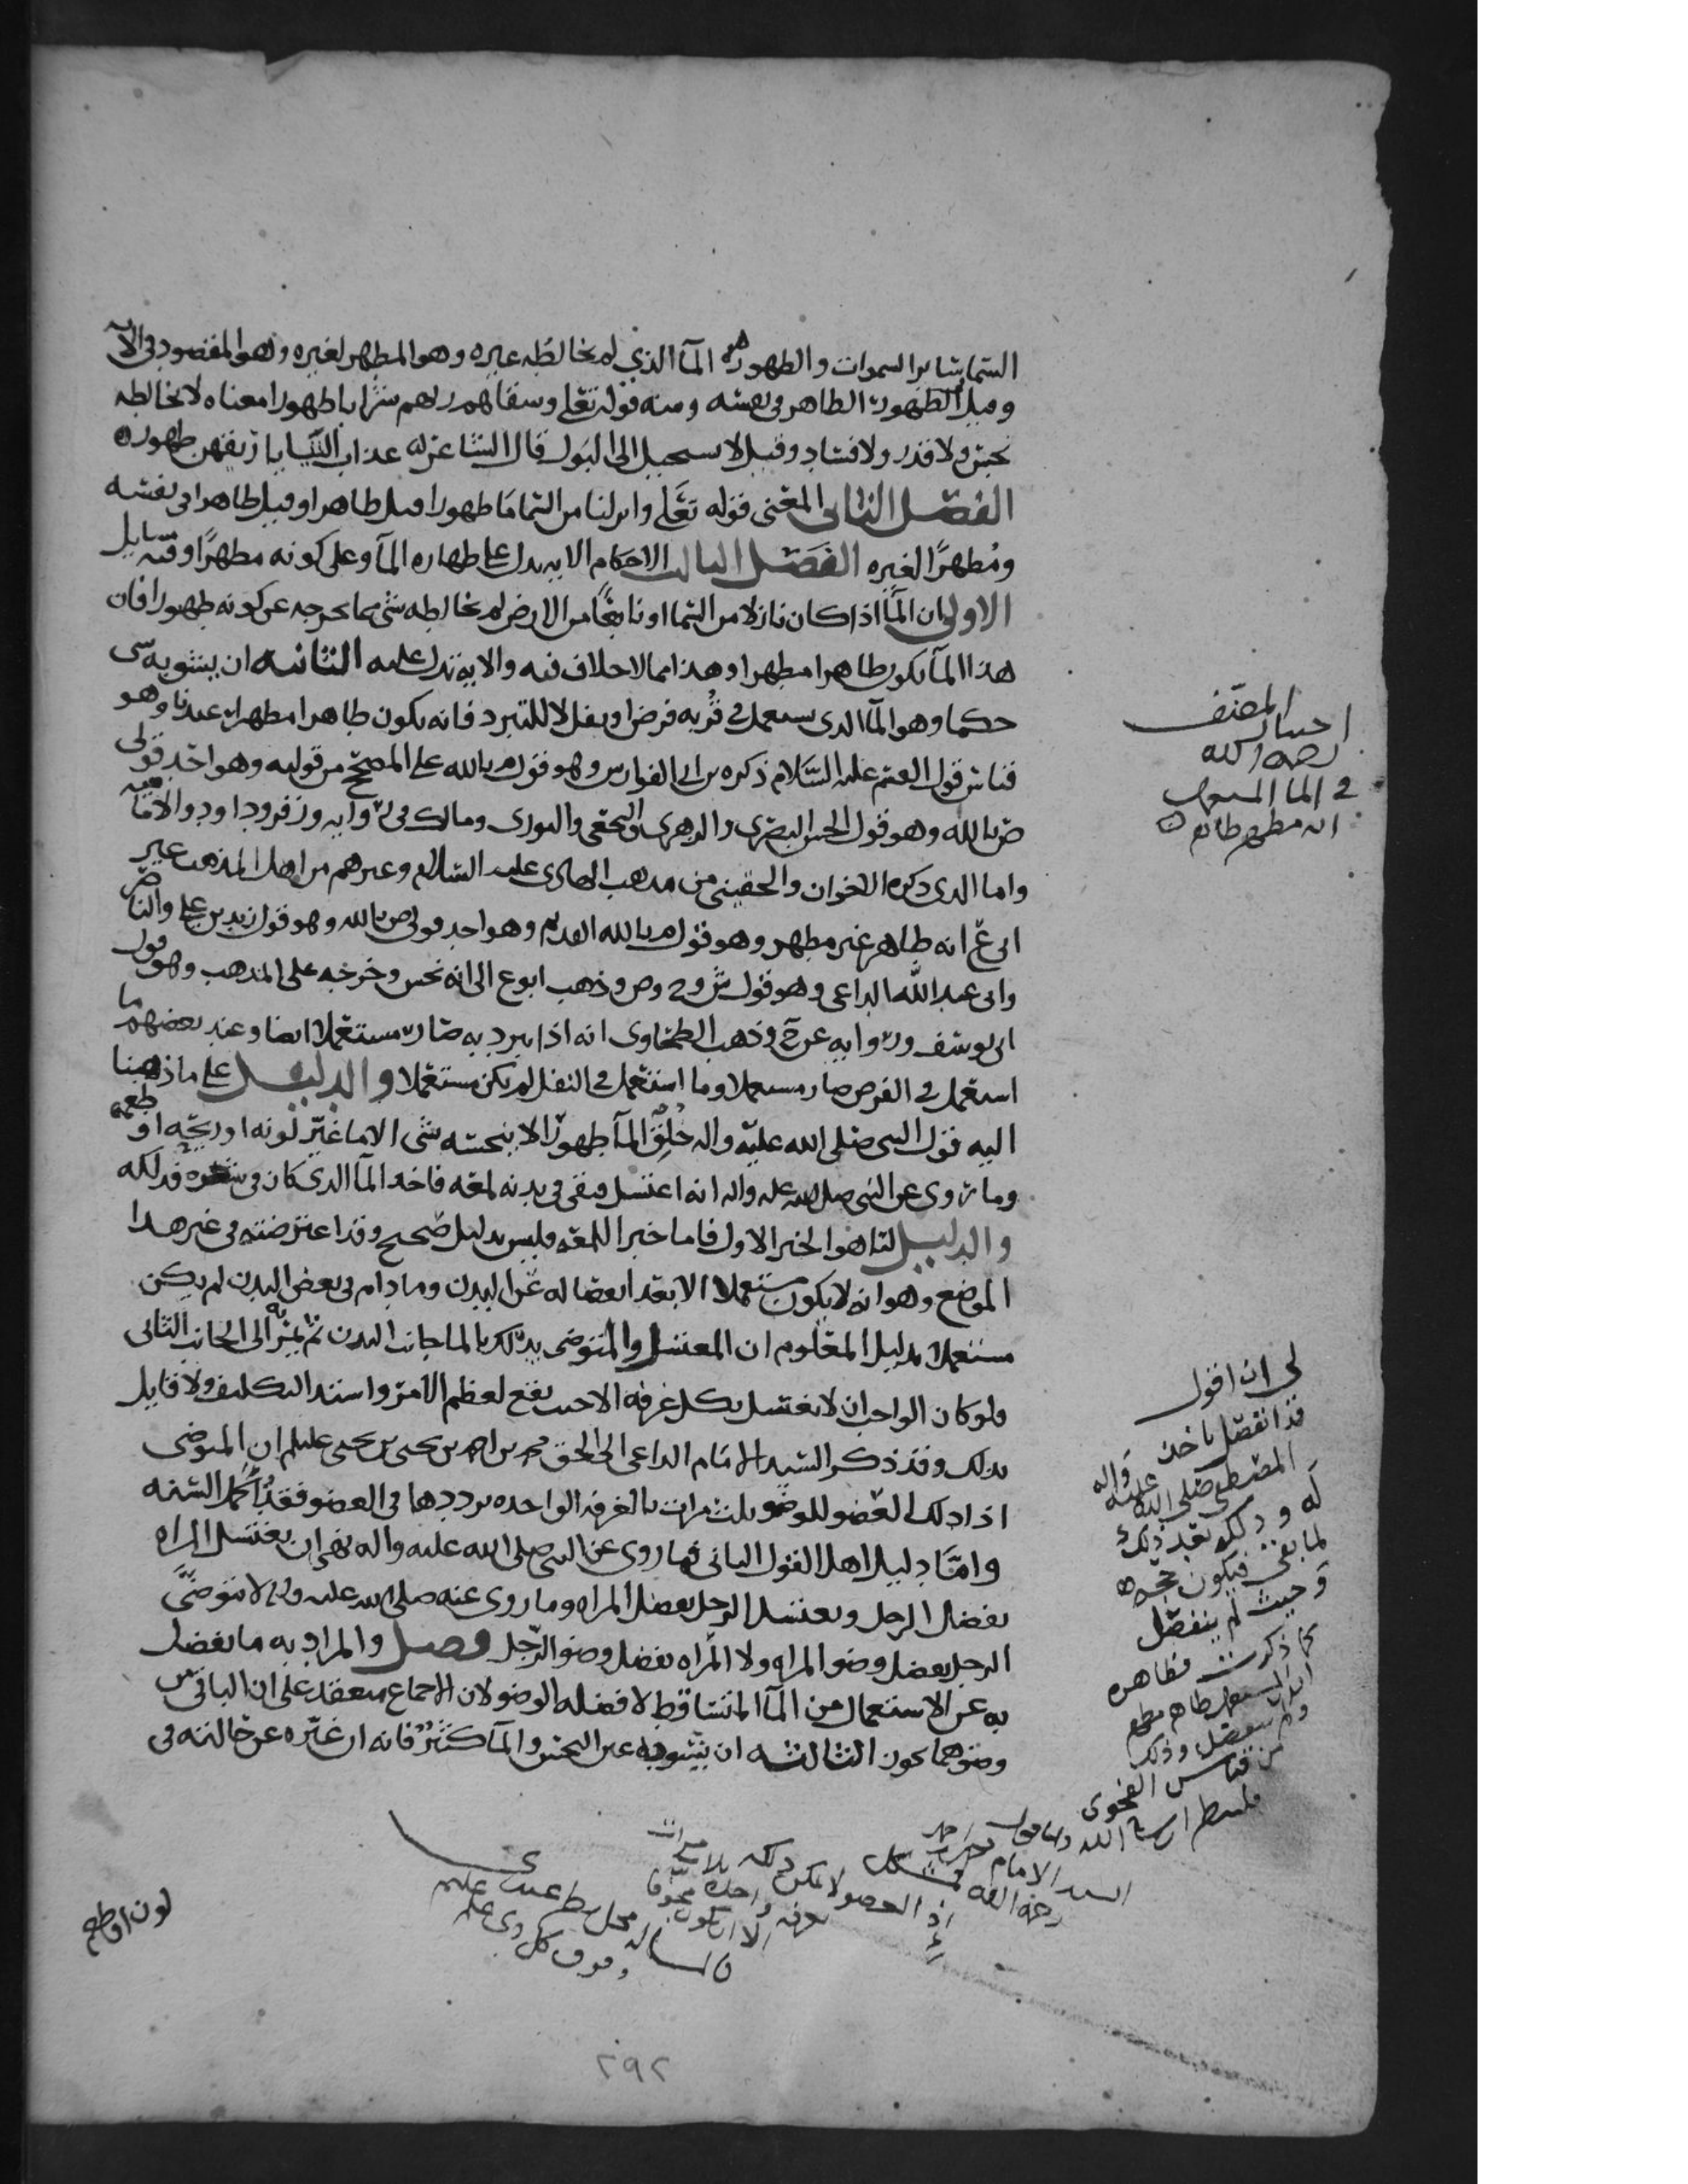 السماء سائر السموات والطهور هو المآ الذي لم يخالطه غيره وهو المطهر لغيره وهو المقصود في الآيه
وقيل الطهور الطاهر في نفسه ومنه قوله تعلى وسقاهم ربهم شرابا طهورا معناه لا يخالطه
نجس ولا قذر ولا فساد وقيل لا يستحيل الى البول قال الشاعر له عذاب الثنايا ريقهن طهور
الفصل الثاني المعنى قوله تعلى وانزلنا من السما مآ طهورا قيل طاهرا وقيل طاهرا في نفسه
ومطهرًا لغيره الفصل الثالث الاحكام الايه تدل على طهارة المآ وعلى كونه مطهرًا وفيه مسايل
الاولى ان المآ اذا كان نازلا من السما او نابعًا من الارض لم يخالطه شي مما يخرجه عن كونه طهورا فان
هذا المآ يكون طاهرا مطهرا وهذا مما لا خلاف فيه والايه تدل عليه الثانيه ان يشوبه شي
حكما وهو المآ الذي يستعمل في قربه فرضا او نفلا لا للتبرد فانه يكون طاهرا مطهرا عندنا وهو
قياس قول القسم عليه السلام ذكره بن ابي الفوارس وهو قول م بالله على المصحح من قوليه وهو احد قولي
ض بالله وهو قول الحسن البصري والزهري والنخعي والثوري ومالك في روايه وزفر وداود والاماميه
واما الذي ذكره الاخوان والحقيني من مذهب الهادي عليه السلام وغيرهم من اهل المذهب غير
ابي ع انه طاهر غير مطهر وهو قول م بالله القديم وهو احد قولي ص بالله وهو قول زيد بن علي والناصر
وابي عبدالله الداعي وهو قول ش وح وص وذهب ابو ع الى انه نجس وخرجه على المذهب وهو قول
ابي يوسف وروايه عن ح وذهب الطحاوي انه اذا تبرد به صار مستعملا ايضا وعند بعضهم ما
استعمل في الفرض صار مستعملا وما استعمل في النفل لم يكن مستعملا والدليل على ما ذهبنا
اليه قول النبي صلى الله عليه واله خلق المآ طهورا لا ينجسه شي الا ما غير لونه او ريحه او طعمه
وما روي عن النبي صلى الله عليه واله انه اغتسل فبقي في بدنه لمعه فاخذ المآ الذي كان في شعره فدلكه
والدليل لنا هو الخبر الاول فاما خبر اللمعه فليس بدليل صحيح وقد اعترضته في غير هذا
الموضع وهو انه لا يكون مستعملا الا بعد انفصاله عن البدن وما دام في بعض البدن لم يكن
مستعملا بدليل المعلوم ان المغتسل والمتوضي يدلك بالما جانب البدن ثم يمر به الى الجانب الثاني
فلو كان الواجب ان لا يغتسل بكل غرفه الا حيث يقع لعظم الامر واشتد التكليف ولا قايل
بذلك وقد ذكر السيد الامام الداعي الى الحق محمد بن احمد بن يحيى بن يحيى عليلم ان المتوضي
اذا دلك العضو للوضو ثلث مرات بالغرفه الواحده يرددها في العضو فقد اكمل السنه
وامّا دليل اهل القول الثاني فما روي عن النبي صلى الله عليه واله نهى ان يغتسل المراه
بفضل الرجل ويغتسل الرجل بفضل المراه وما روي عنه صلى الله عليه واله لا يتوضى
الرجل بفضل وضو المراه ولا المراه بفضل وضو الرجل فصل والمراد به ما يفضل
به عن الاستعمال من المآ المتساقط لا فضله الوضو لان الاجماع منعقد على ان الباقي من
وضوهما يجوز الثالثه ان يشوبه غير النجس والمآ كثير فانه ان غيره عن حالته في
اختيار المصنف
رحمه الله
في الما المستعمل
انه مطهر طاهر
لي ان اقول
قد انفصل باخذ
المصطفى صلى الله عليه واله
له و دلكه بعد ذلك
لما بقي فيكون حجه
وحيث لم ينفصل
كما ذكرت فظاهره
ولم ينفصل وذلك
من قياس الفحوى
السيد الامام
رحمه الله
وفوق كل ذي علم
لون او طعم
٢٩٢